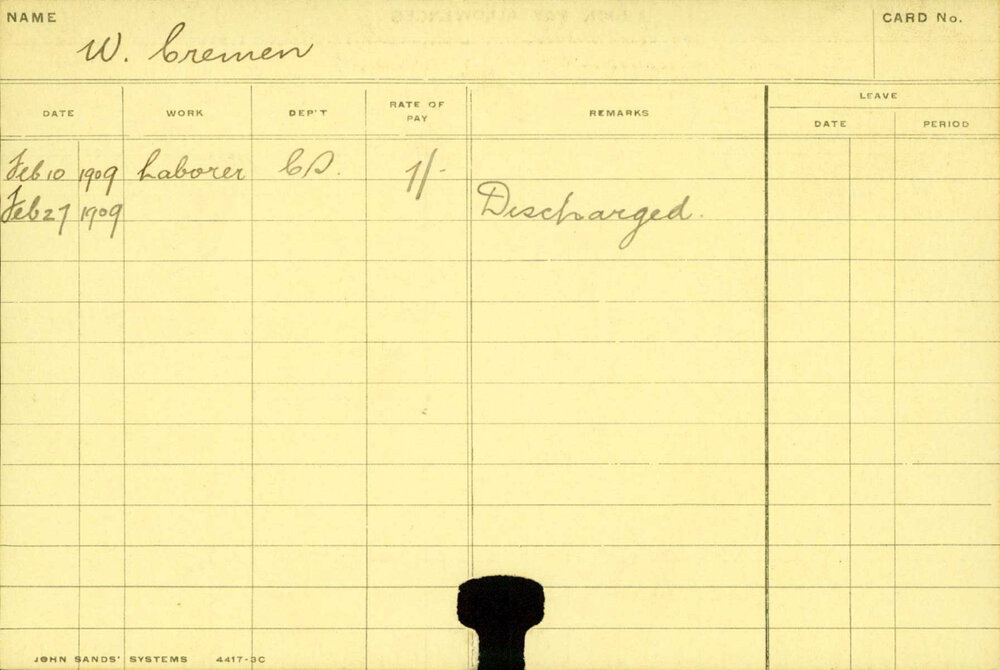 NAME
CARD No.
W. Cremen
DATE WORK DEP'T RATE OF PAY REMARKS LEAVE
DATE PERIOD
Feb 10 1909 Laborer CD. 1/-
Feb 27 1909 Discharged.
JOHN SANDS' SYSTEMS 4417-3C